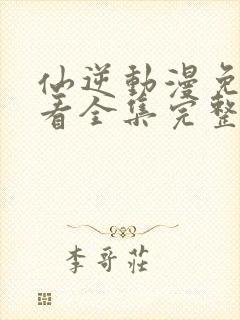 仙逆動漫免
看全集完整
李哥莊